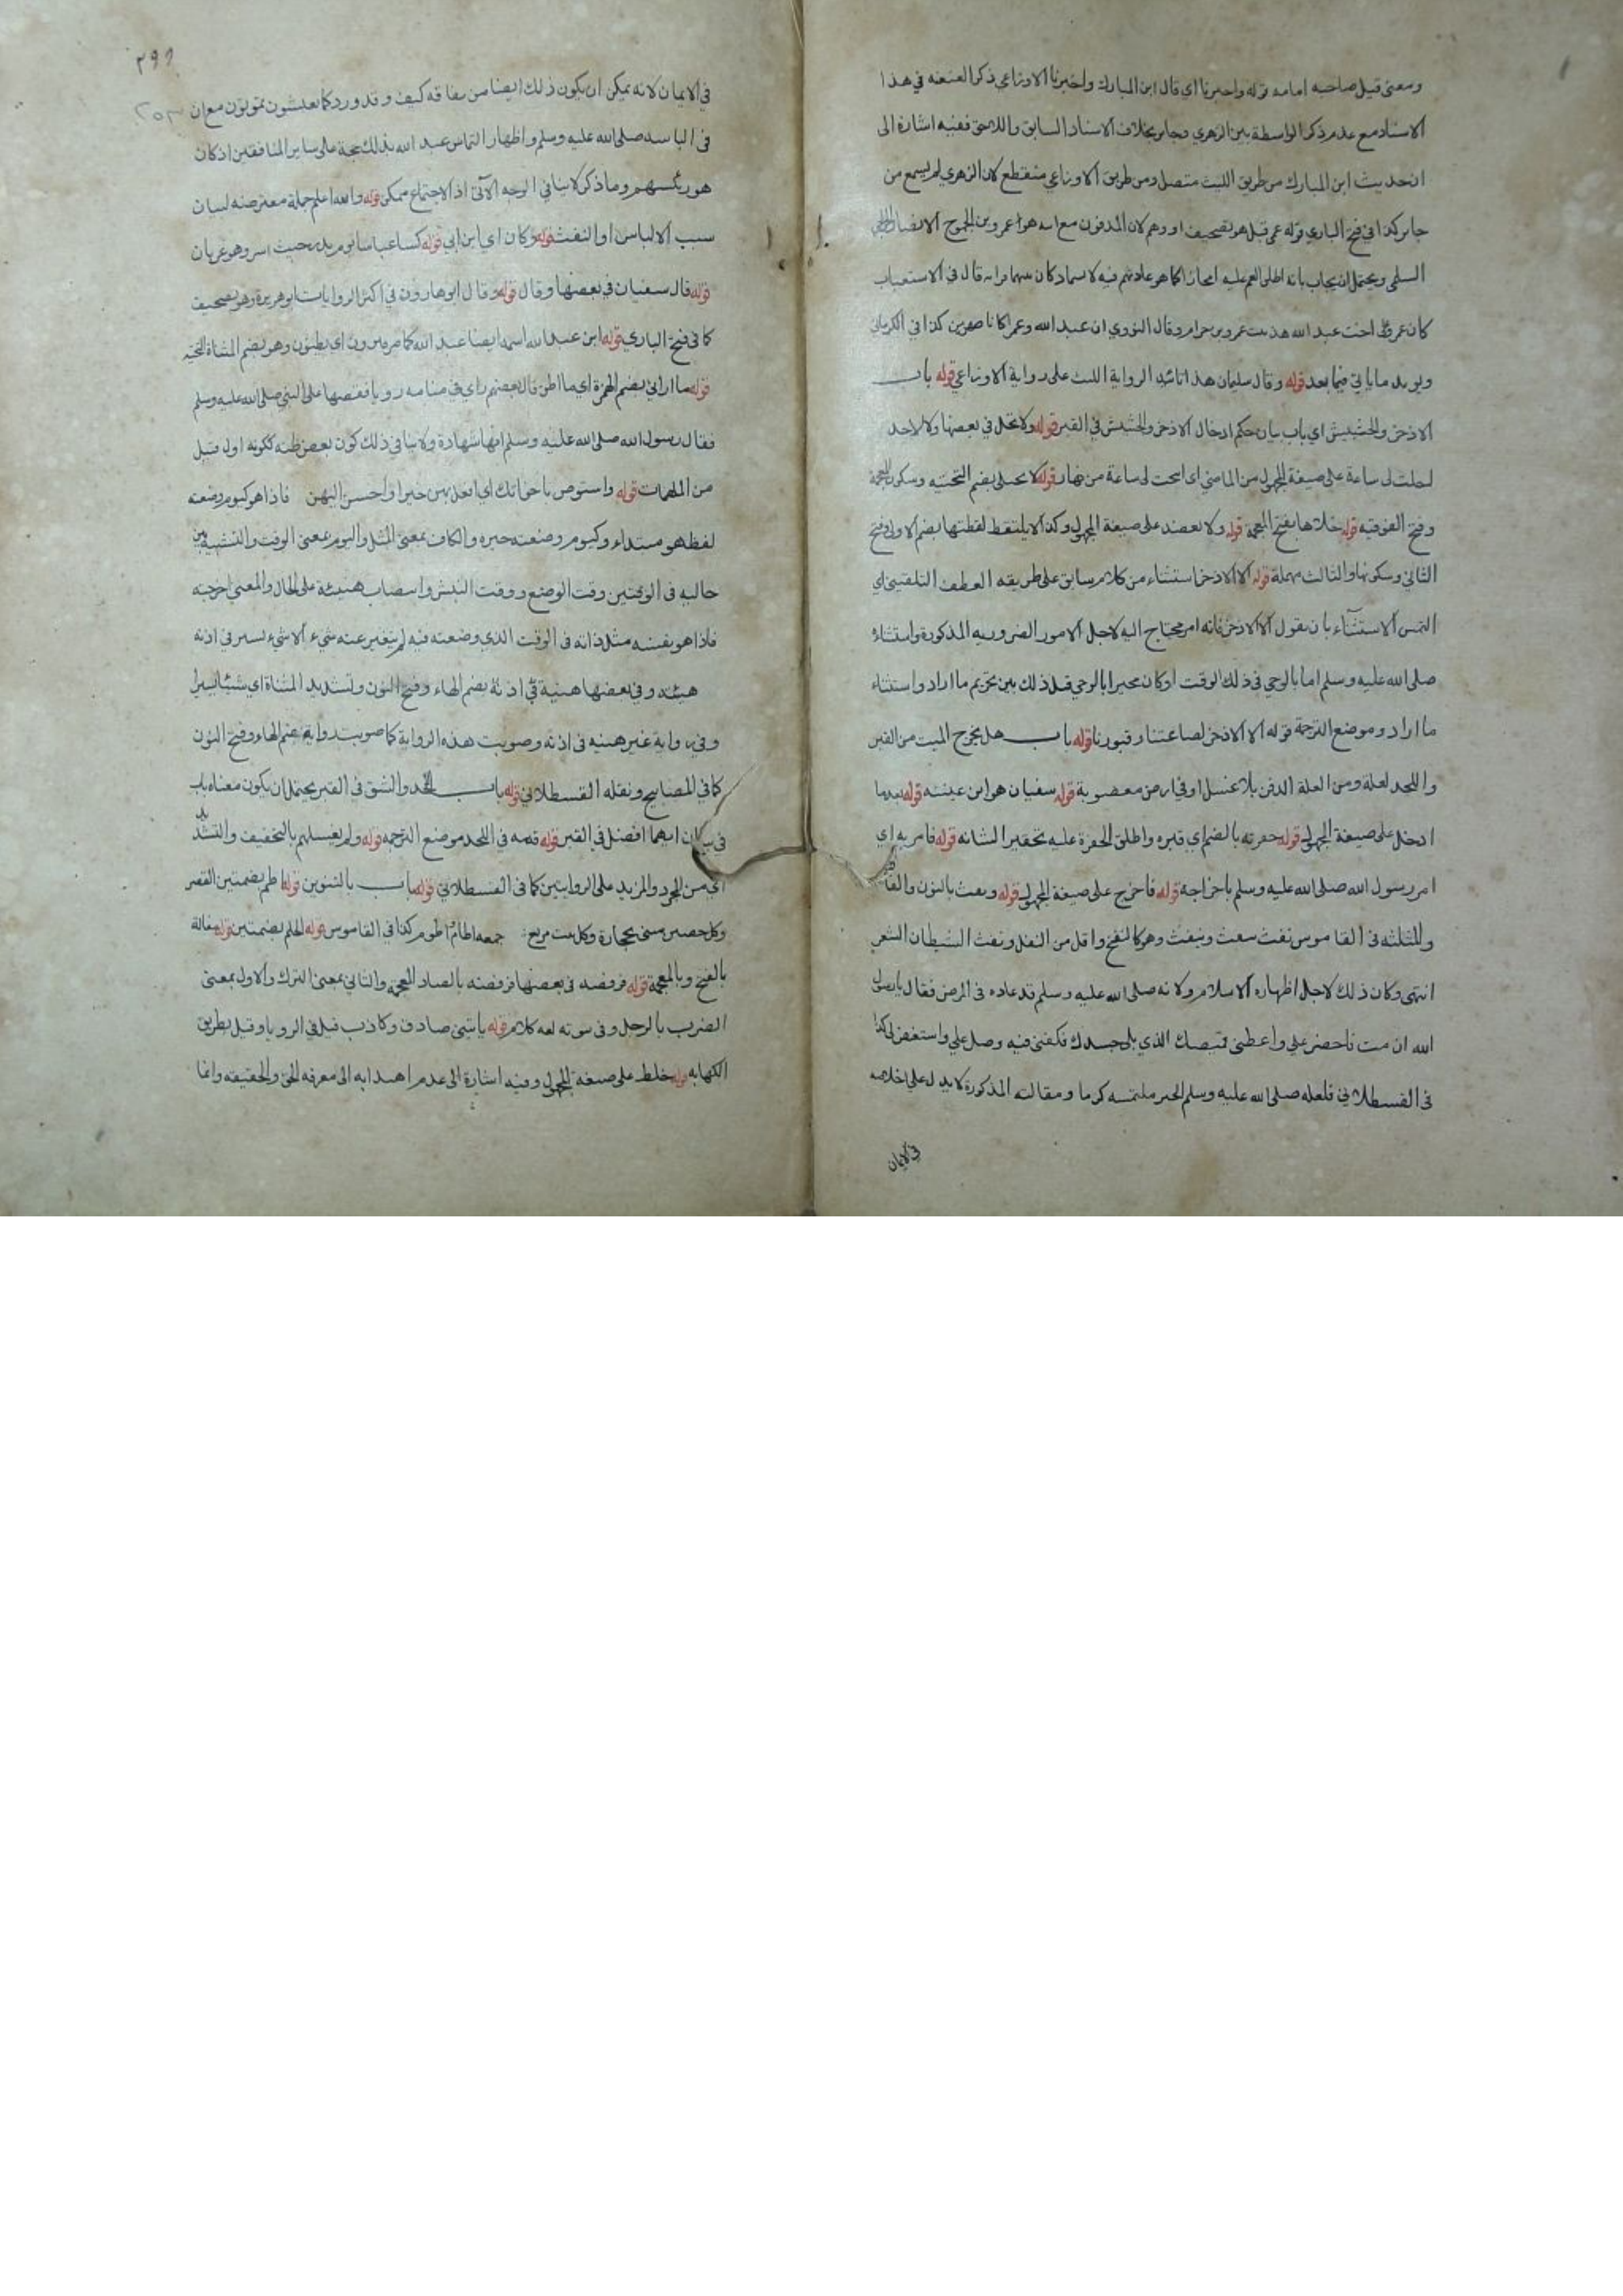 ومعنى قيل صاحبه امامه قوله واخبرنا اي قال ابن المبارك واخبرنا الاوزاعي ذكر العنعنه في هذا
الاسناد مع عدم ذكر الواسطة بين الزهري وجابر بخلاف الاسناد السابق واللاحق ففيه اشارة الى
ان حديث ابن المبارك من طريق الليث متصل ومن طريق الاوزاعي منقطع لان الزهري لم يسمع من
جابر كذا في فتح الباري قوله عمي قيل هو تصحيف او وهم لان المدفون مع ابيه هو عمرو بن الجموح الانصاري
السلمي ويحتمل ان يجاب بانه اطلق العم عليه مجازا كما هو عادتهم فيه لا سيما وكان بينهما قرابه قال في الاستيعاب
كان عمرو على اخت عبد الله هند بنت عمرو بن حرام وقال النووي ان عبد الله وعمرا كانا صهرين كذا في الكرماني
ويويد ما ياتي فيما بعد قوله وقال سليمان هذا تائيد الرواية الليث على رواية الاوزاعي قوله باب
الاذخر والحشيش اي باب بيان حكم ادخال الاذخر والحشيش في القبر قوله ولا تحل في بعضها ولا لاحد
احلت لي ساعة على صيغة المجهول من الماضي اي ابيحت لي ساعة من نهار قوله لا يختلى بضم التحتيه وسكون المعجمة
وفتح الفوقيه قوله خلاها بفتح المعجمة قوله ولا يعضد على صيغة المجهول وكذا لا يلتقط لقطتها بضم الاولى وفتح
الثاني وسكونها والثالث مهملة قوله الا الاذخر استثناء من كلام سابق على طريقه العطف التلقيني اي
التمس الاستثناء بان يقول الا الاذخر فانه امر محتاج اليه لاجل الامور الضروريه المذكورة واستثناء
صلى الله عليه وسلم اما بالوحي في ذلك الوقت او كان مخيرا بالوحي قبل ذلك بين تحريم ما اراد واستثناء
ما اراد وموضع الترجمة قوله الا الاذخر لصاغتنا وقبورنا قوله باب هل يخرج الميت من القبر
واللحد لعلة ومن العلة الدفن بلا غسل او في ارض مغصوبة قوله سفيان هو ابن عيينه قوله بعد ما
ادخل على صيغة المجهول قوله حفرته بالضم اي قبره واطلق الحفرة عليه تحقيرا لشانه قوله فامر به اي
امر رسول الله صلى الله عليه وسلم باخراجه قوله فاخرج على صيغة المجهول قوله ونفث بالنون والفاء
والمثلثه في القاموس نفث ينفث وينفث وهو كالنفخ واقل من التفل ونفث الشيطان الشعر
انتهى وكان ذلك لاجل اظهاره الاسلام ولانه صلى الله عليه وسلم قد عاده في المرض فقال يا رسول
الله ان مت فاحضر غسلي واعطني قميصك الذي يلي جسدك فكفني فيه وصل علي واستغفر لي كذا
في القسطلاني فلعله صلى الله عليه وسلم انجز ملتمسه كرما ومقالته المذكورة لا يدل على اخلاصه
في الايمان
٢٩٦
٢٥٣
في الايمان لانه يمكن ان يكون ذلك ايضا من نفاقه كيف وقد ورد كما تعيشون تموتون مع ان
في الباسه صلى الله عليه وسلم واظهار التماس عبد الله بذلك حجة على ساير المنافقين اذ كان
هو رئيسهم وما ذكر لا ينافي الوجه الآتي اذ الاجتماع ممكن قوله والله اعلم جملة معترضه لبيان
سبب الالباس او النفث قوله وكان اي ابن ابي قوله كسا عباسا يوم بدر حيث اسر وهو عريان
قوله قال سفيان في بعضها وقال قوله وقال ابو هارون في اكثر الروايات ابو هريرة وهو تصحيف
كما في فتح الباري قوله ابن عبد الله اسمه ايضا عبد الله كما يرون اي يظنون وهو بضم المثناة التحتية
قوله ما اراني بضم الهمزة اي ما اظن قال بعضهم راي في منامه رويا فقصها على النبي صلى الله عليه وسلم
فقال رسول الله صلى الله عليه وسلم انها شهادة ولا ينافي ذلك كون بعض ظنه ككونه اول قتيل
من الملهمات قوله واستوص باخواتك اي افعل بهن خيرا واحسن اليهن فاذا هو كيوم وضعته
لفظ هو مبتداء وكيوم وضعته خبره والكاف بمعنى المثل واليوم بمعنى الوقت والتشبيه بين
حاليه في الوقتين وقت الوضع ووقت النبش وانتصاب هنيئة على الحال والمعنى اخرجته
فاذا هو بنفسه مثل ذاته في الوقت الذي وضعته فيه لم يتغير عنه شيء الا شيء يسير في اذنه
هيئه وفي بعضها هنية في اذنه بضم الهاء وفتح النون وتشديد المثناة اي شيئا يسيرا
وفي رواية غير هنيه في اذنه وصوبت هذه الرواية كما صوبت رواية بضم الهاء وفتح النون
كما في المصابيح ونقله القسطلاني قوله باب اللحد والشق في القبر يحتمل ان يكون معناه باب
في بيان ايهما افضل في القبر قوله قدمه في اللحد موضع الترجمه قوله ولم يغسلهم بالتخفيف والتشديد
اي من المجرد والمزيد على الروايتين كما في القسطلاني قوله باب بالتنوين قوله اطم بضمتين القصر
وكل حصن مبني بحجارة وكل بيت مربع جمعه اطام اطوم كذا في القاموس قوله الحلم بضمتين قوله مغالة
بالفتح وبالمعجمة قوله فرفضه في بعضها فرفصه بالصاد المعجمه والثاني بمعنى الترك والاول بمعنى
الضرب بالرجل وفي ثبوته لغه كلام قوله ياتيني صادق وكاذب قيل في الرويا وقيل بطريق
الكهانه قوله خلط على صيغة المجهول وفيه اشارة الى عدم اهتدائه الى معرفه الحق والحقيقه وانما